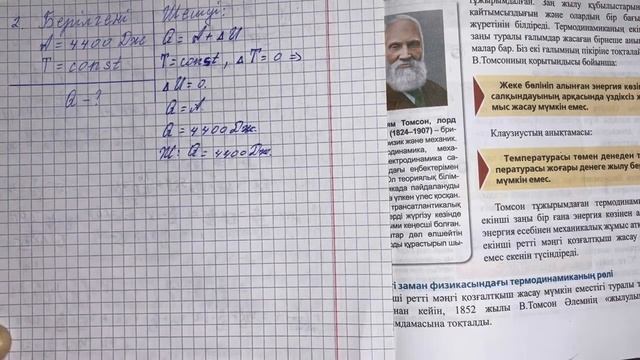 2. Берілгені
A = 4400 Дж
T = const
Q - ?
Шешуі:
Q = A + ΔU
T = const, ΔT = 0 =>
ΔU = 0.
Q = A
Q = 4400 Дж.
Ж: Q = 4400 Дж.
ям Томсон, лорд
(1824–1907) – бри-
физик және механик.
одинамика, меха-
ектродинамика са-
дағы еңбектерімен
Ол теориялық білім-
када пайдалануды
үлкен үлес қосқан.
трансатлантикалық
ерді жүргізу кезінде
ми кеңесші болған.
тар дәл өлшейтін
ды құрастырып шы-
тұжырымдалған. Заң жылу құбылыстары
қайтымсыздығын және олардың бір бағы
жүретінін білдіреді. Термодинамиканың екін
заңы туралы ғалымдар жасаған бірнеше аны
малар бар. Біз екі ғалымның пікіріне тоқталай
В.Томсонның қорытындысы бойынша:
Жеке бөлініп алынған энергия көзін
салқындауының арқасында үздіксіз ж
мыс жасау мүмкін емес.
Клаузиустың анықтамасы:
Температурасы төмен денеден т
пературасы жоғары денеге жылу бе
мүмкін емес.
Томсон тұжырымдаған термодинам
екінші заңы бір ғана энергия көзінен а
энергия есебінен механикалық жұмыс атқ
екінші ретті мәңгі қозғалтқыш жасау
емес екенін түсіндіреді.
гі заман физикасындағы термодинамиканың рөлі
ші ретті мәңгі қозғалтқыш жасау мүмкін еместігі туралы т
нан кейін, 1852 жылы В.Томсон Әлемнің «жылулы
мдамасына тоқталды.